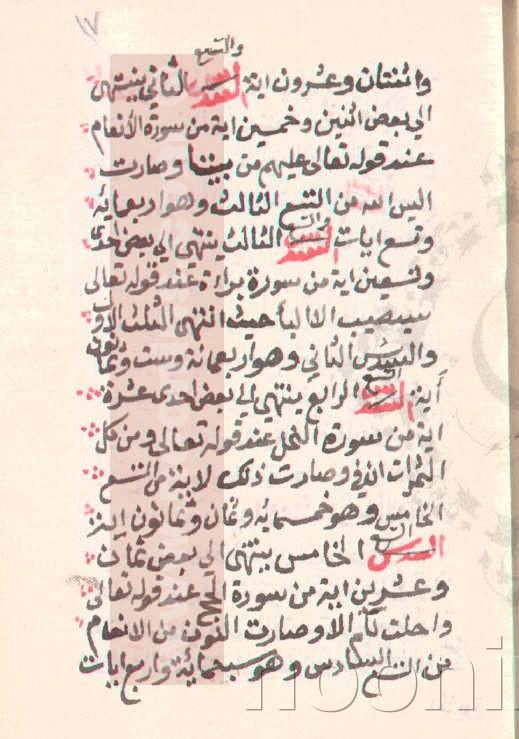 ١٧
والتسع
واثنتان وعشرون اية السدس الثاني ينتهي
الى بعض اثنين وخمسين اية من سورة الأنعام
عند قوله تعالى عليهم من بيننا وصارت
اليس الله من التسع الثالث وهو اربعمائه
وتسع ايات السدس والتسع الثالث ينتهى الى بعض احدى
وتسعين اية من سورة براءة عند قوله تعالى
سيصيب الا لبا حيث انتهى الثلث الاول
والسدس الثاني وهو اربعمائة وست وثمانون
أية السدس التسع الرابع ينتهي الي بعض احدى عشرة
اية من سورة النحل عند قوله تعالى ومن كل
الثمرات ان في وصارت ذلك لاية من التسع
الخامس وهو خمسمايه وثمان وثمانون اية
السدس التسع الخامس ينتهى الى بعض ثمان
وعشرين اية من سورة الحج عند قوله تعالى
واحلت لكم الا وصارت النون من الانعام
من التسع السادس وهو سبعمائة واربع ايات
nooni